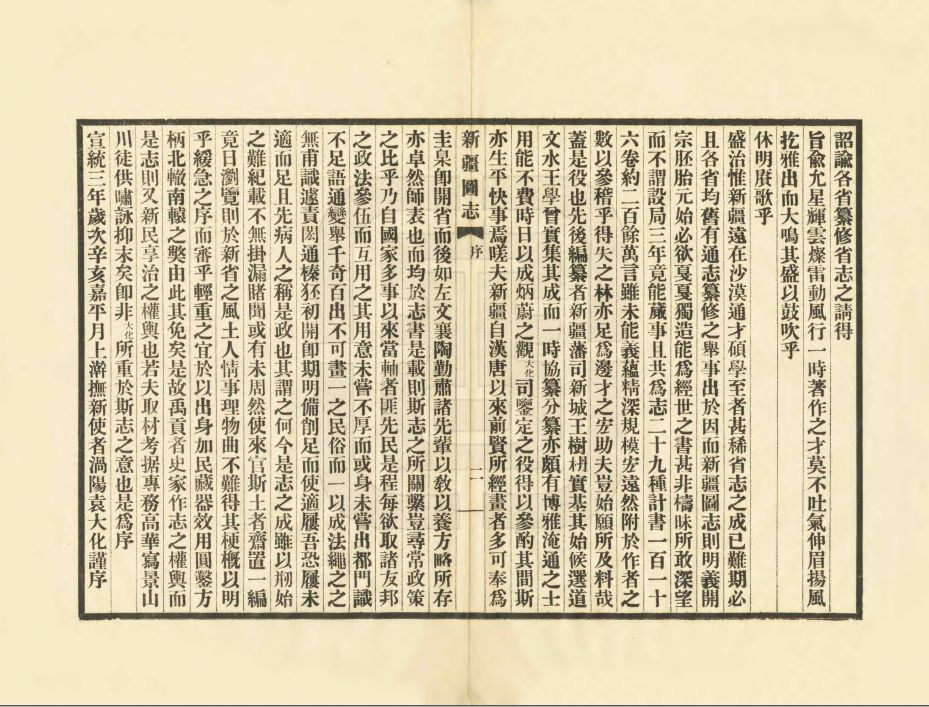 詔諭各省纂修省志之請得
旨兪允星輝雲燦雷動風行一時著作之才莫不吐氣伸眉揚風
扢雅出而大鳴其盛以鼓吹乎
休明賡歌乎
盛治惟新疆遠在沙漠通才碩學至者甚稀省志之成已難期必
且各省均舊有通志纂修之舉事出於因而新疆圖志則明義開
宗胚胎元始必欲戛戛獨造能爲經世之書甚非檮昧所敢深望
而不謂設局三年竟能蕆事且共爲志二十九種計書一百一十
六卷約二百餘萬言雖未能義蘊精深規模宏遠然附於作者之
數以參稽乎得失之林亦足爲邊才之宏助夫豈始願所及料哉
蓋是役也先後編纂者新疆藩司新城王樹枬實基其始候選道
文水王學曾實集其成而一時協纂分纂亦頗有博雅淹通之士
用能不費時日以成炳蔚之觀大化司鑒定之役得以參酌其間斯
亦生平快事焉嗟夫新疆自漢唐以來前賢所經畫者多可奉爲
新疆圖志 序 二一
圭臬卽開省而後如左文襄陶勤肅諸先輩以敎以養方略所存
亦卓然師表也而均於志書是載則斯志之所關繫豈尋常政策
之比乎乃自國家多事以來當軸者匪先民是程每欲取諸友邦
之政法參伍而互用之其用意未嘗不厚而或身未嘗出都門識
不足語通變舉千奇百出不可畫一之民俗而一以成法繩之之
無甫識遽責閎通榛狉初開卽期明備削足而使適屨吾恐屨未
適而足且先病人之稱是政也其謂之何今是志之成雖以剏始
之難紀載不無掛漏睹聞或有未周然使來官斯土者齋置一編
竟日瀏覽則於新省之風土人情事理物曲不難得其梗槪以明
乎緩急之序而審乎輕重之宜於以出身加民藏器效用圓鑿方
柄北轍南轅之獘由此其免矣是故禹貢者史家作志之權輿而
是志則又新民享治之權輿也若夫取材考据專務高華寫景山
川徒供嘯詠抑末矣卽非大化所重於斯志之意也是爲序
宣統三年歲次辛亥嘉平月上澣撫新使者渦陽袁大化謹序